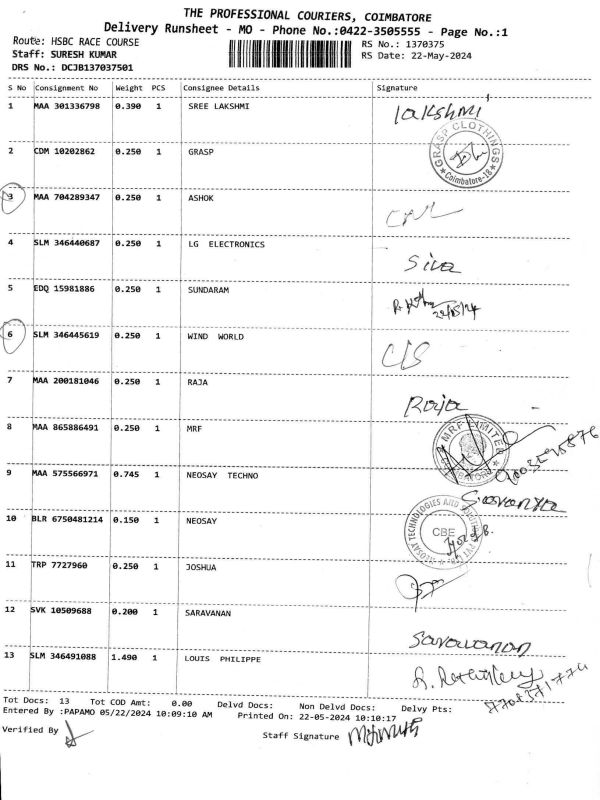 THE PROFESSIONAL COURIERS, COIMBATORE
Delivery Runsheet - MO - Phone No.:0422-3505555 - Page No.:1
Route: HSBC RACE COURSE RS No.: 1370375
Staff: SURESH KUMAR RS Date: 22-May-2024
DRS No.: DCJB137037501
S No Consignment No Weight PCS Consignee Details Signature
1 MAA 301336798 0.390 1 SREE LAKSHMI lakshmi
2 CDM 10202862 0.250 1 GRASP GRASP CLOTHINGS Coimbatore-18
3 MAA 704289347 0.250 1 ASHOK
4 SLM 346440687 0.250 1 LG ELECTRONICS Siva
5 EDQ 15981886 0.250 1 SUNDARAM 22/05/24
6 SLM 346445619 0.250 1 WIND WORLD C/S
7 MAA 200181046 0.250 1 RAJA Raja
8 MAA 865886491 0.250 1 MRF MRF LIMITED COIMBATORE
9 MAA 575566971 0.745 1 NEOSAY TECHNO
10 BLR 6750481214 0.150 1 NEOSAY CBE
11 TRP 7727960 0.250 1 JOSHUA
12 SVK 10509688 0.200 1 SARAVANAN Saravanan
13 SLM 346491088 1.490 1 LOUIS PHILIPPE
Tot Docs: 13 Tot COD Amt: 0.00 Delvd Docs: Non Delvd Docs: Delvy Pts:
Entered By :PAPAMO 05/22/2024 10:09:10 AM Printed On: 22-05-2024 10:10:17
Verified By Staff Signature